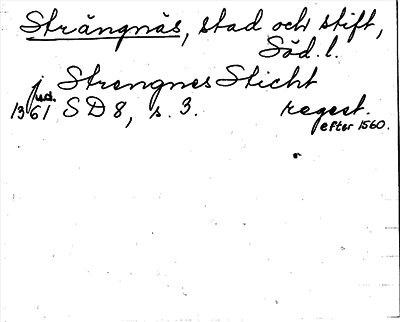 Strängnäs, stad och stift,
Söd. l.
j Strengnes Sticht
1361 SD 8, s. 3. regest.
efter 1560.